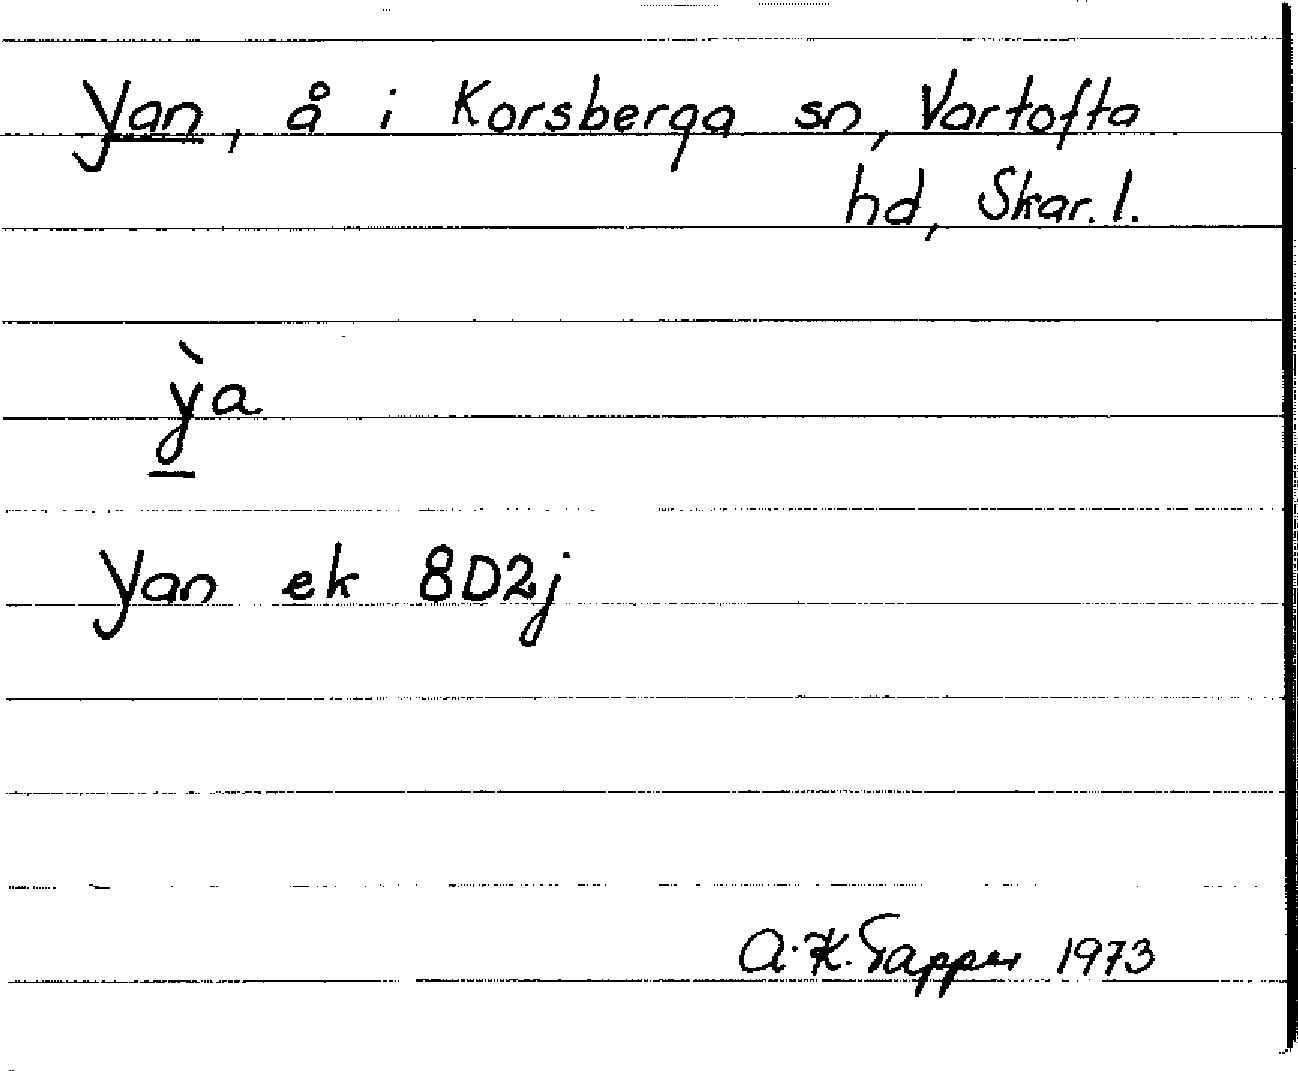 Yan, å i Korsberga sn, Vartofta
hd, Skar. l.
ỳ̱a
Yan ek 8D2j
A.K. Tapper 1973